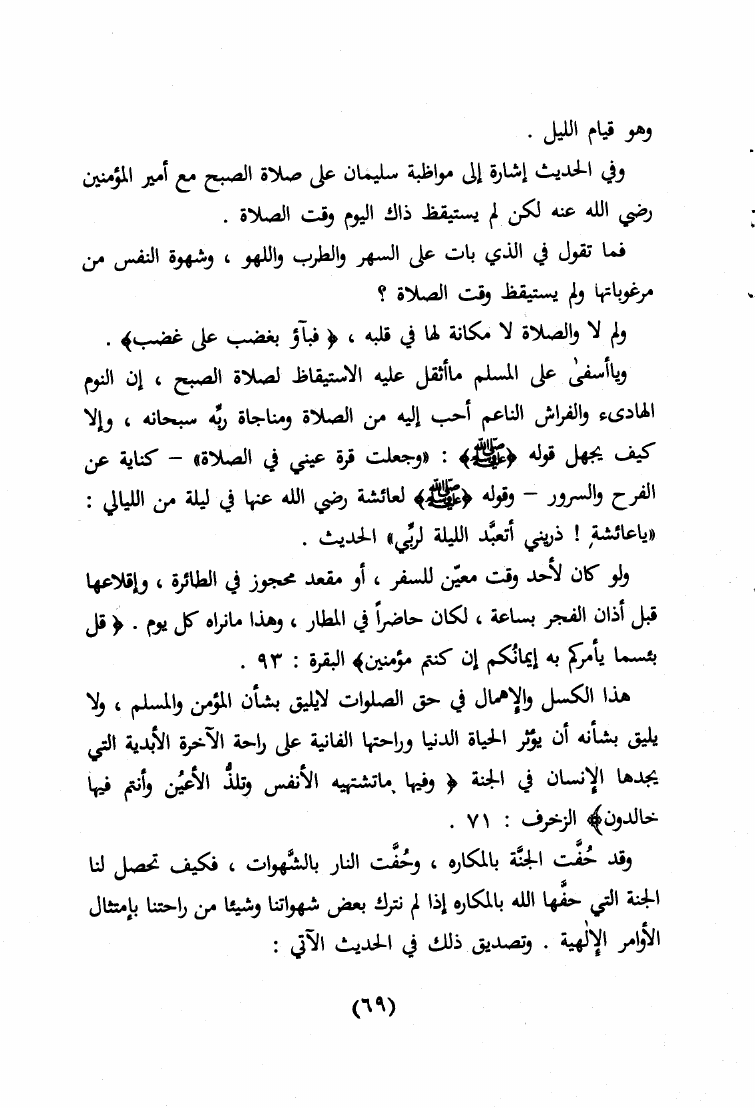 وهو قيام الليل .
وفي الحديث إشارة إلى مواظبة سليمان على صلاة الصبح مع أمير المؤمنين
رضي الله عنه لكن لم يستيقظ ذاك اليوم وقت الصلاة .
فما تقول في الذي بات على السهر والطرب واللهو ، وشهوة النفس من
مرغوباتها ولم يستيقظ وقت الصلاة ؟
ولم لا والصلاة لا مكانة لها في قلبه ، ﴿ فبآؤ بغضب على غضب﴾ .
وياأسفىٰ على المسلم ماأثقل عليه الاستيقاظ لصلاة الصبح ، إن النوم
الهادىء والفراش الناعم أحب إليه من الصلاة ومناجاة ربّه سبحانه ، وإلا
كيف يجهل قوله ﴿ﷺ﴾ : «وجعلت قرة عيني في الصلاة» – كناية عن
الفرح والسرور – وقوله ﴿ﷺ﴾ لعائشة رضي الله عنها في ليلة من الليالي :
«ياعائشة ! ذريني أتعبَّد الليلة لربِّي» الحديث .
ولو كان لأحد وقت معيّن للسفر ، أو مقعد محجوز في الطائرة ، وإقلاعها
قبل أذان الفجر بساعة ، لكان حاضراً في المطار ، وهذا مانراه كل يوم . ﴿ قل
بئسما يأمركم به إيمانُكم إن كنتم مؤمنين﴾ البقرة : ٩٣ .
هذا الكسل والإهمال في حق الصلوات لايليق بشأن المؤمن والمسلم ، ولا
يليق بشأنه أن يؤثر الحياة الدنيا وراحتها الفانية على راحة الآخرة الأبدية التي
يجدها الإنسان في الجنة ﴿ وفيها ماتشتهيه الأنفس وتلذُّ الأعيُن وأنتم فيها
خالدون﴾ الزخرف : ٧١ .
وقد حُفَّت الجنَّة بالمكاره ، وحُفَّت النار بالشَّهوات ، فكيف تحصل لنا
الجنة التي حفَّها الله بالمكاره إذا لم نترك بعض شهواتنا وشيئا من راحتنا بإمتثال
الأوامر الإلٰهية . وتصديق ذلك في الحديث الآتي :
(٦٩)